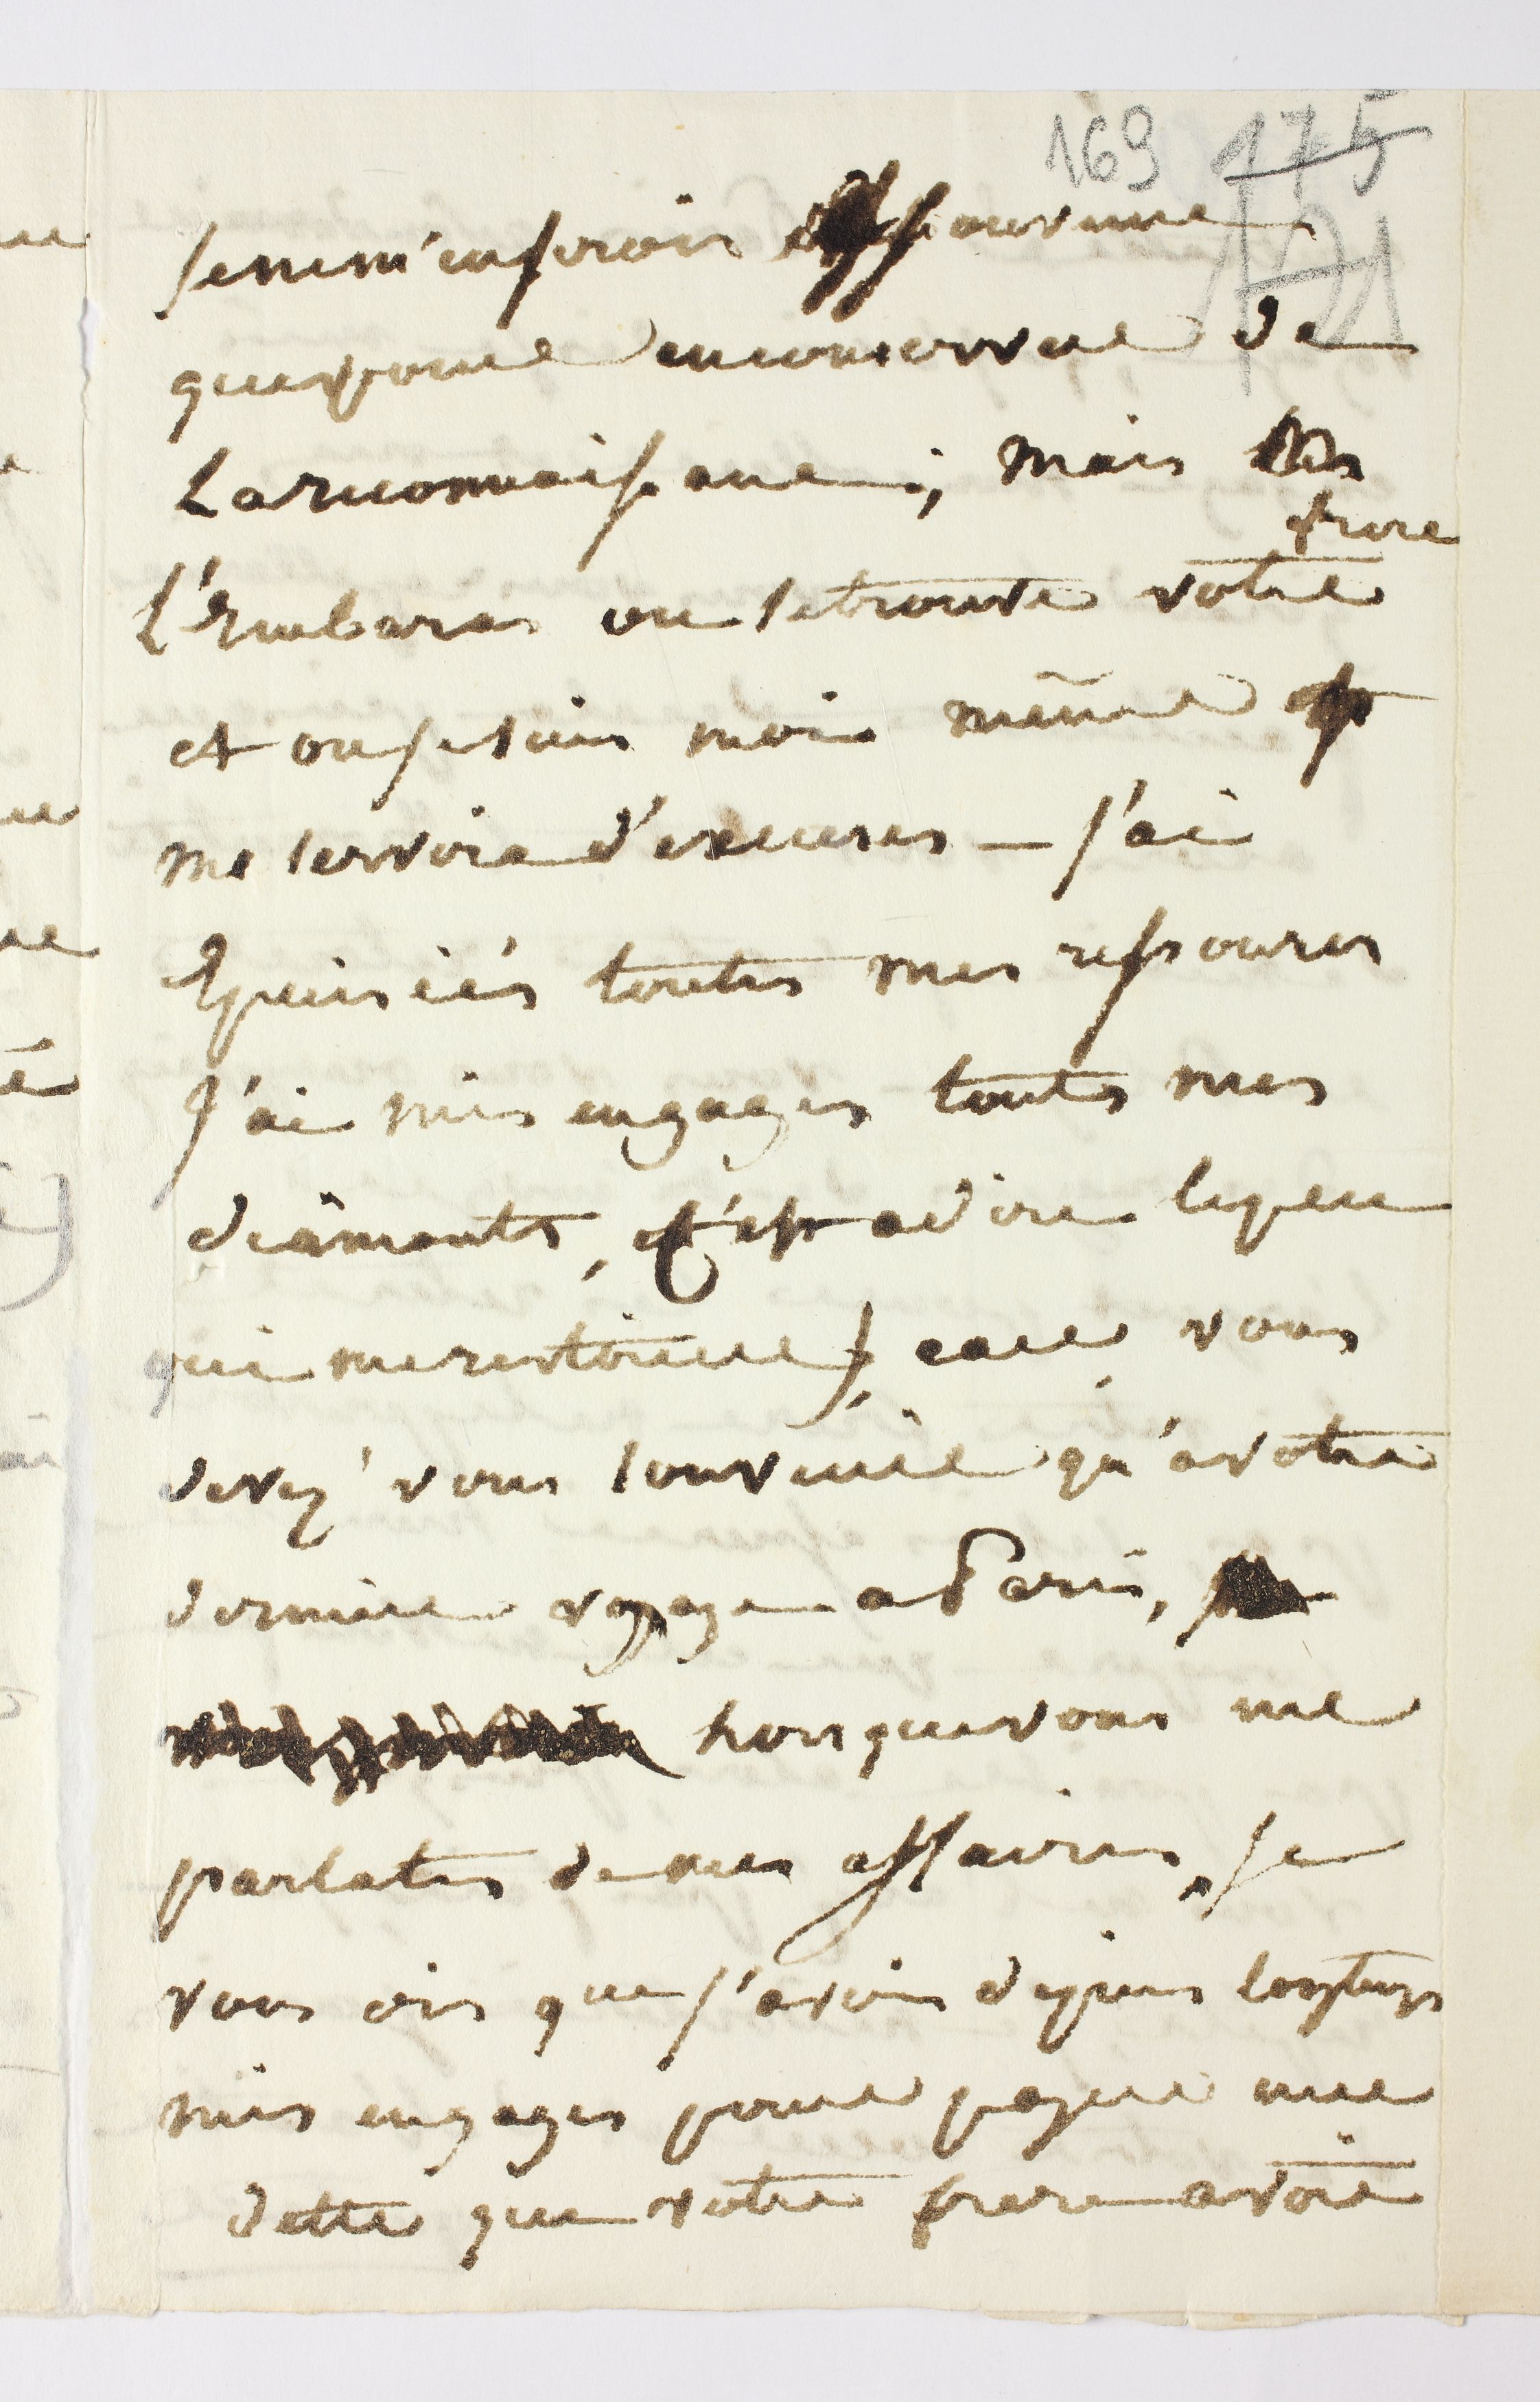 169 175
171
je ne m'en serois souvenue
que pour en conserver de
La reconnaissance, mais
frere
L'Embaras ou se trouve votre
et ou je suis moi même
me servira d'excuses — j'ai
Epuisiés toutes mes ressources
J'ai mis engages touts mes
diâmants, C'est a dire le peu
qui me restoient), car vous
devez vous souvenir qu'a votre
dernier voyage a Paris,
Lorsque vous me
parlates de mes affaires, je
vous dis que j'avois depuis longtemps
mis engages pour payer une
dette que votre frere avoit